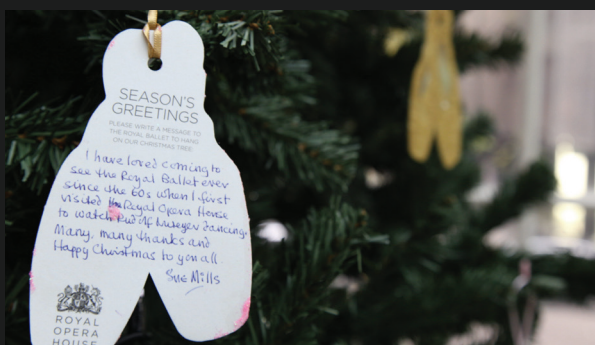 SEASON'S
GREETINGS
PLEASE WRITE A MESSAGE TO
THE ROYAL BALLET TO HANG
ON OUR CHRISTMAS TREE.
I have loved coming to
see the Royal Ballet ever
since the 60s when I first
visited the Royal Opera House
to watch Rudolf Nureyev dancing.
Many, many thanks and
Happy Christmas to you all
Sue Mills
ROYAL
OPERA
HOUSE